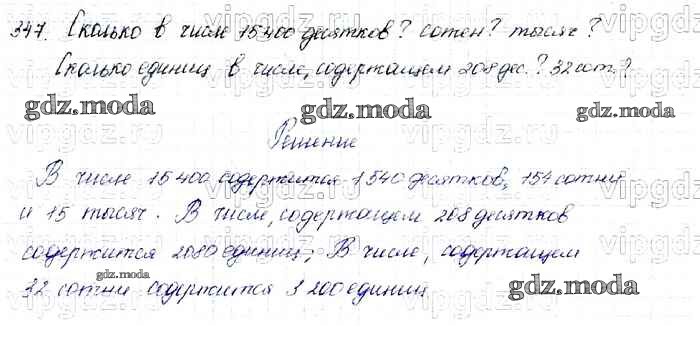 347. Сколько в числе 15400 десятков? сотен? тысяч?
Сколько единиц в числе, содержащем 208 дес.? 32 сот.?
gdz.moda gdz.moda
Решение
В числе 15400 содержится 1540 десятков, 154 сотни
и 15 тысяч. В числе, содержащем 208 десятков
содержится 2080 единиц, В числе, содержащем
gdz.moda
32 сотни содержится 3 200 единиц
gdz.moda
vipgdz.ru